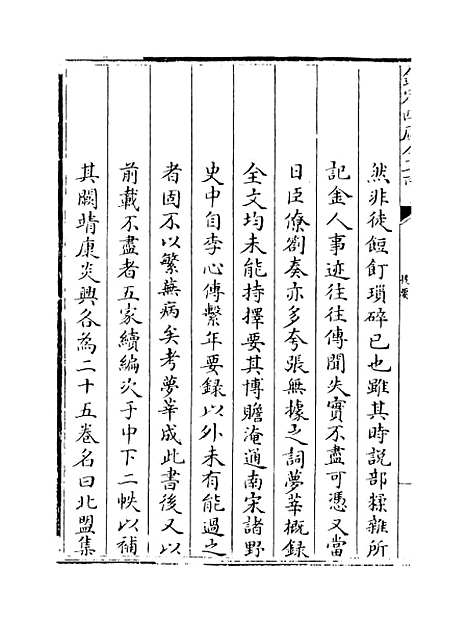 欽定四庫全書
提要
然非徒餖飣瑣碎已也雖其時説部糅雜所
記金人事迹往往傳聞失實不盡可憑又當
日臣僚劄奏亦多夸張無據之詞夢莘概録
全文均未能持擇要其博贍淹通南宋諸野
史中自李心傳繫年要録以外未有能過之
者固不以繁蕪病矣考夢莘成此書後又以
前載不盡者五家續編次于中下二帙以補
其闕靖康炎興各為二十五卷名曰北盟集